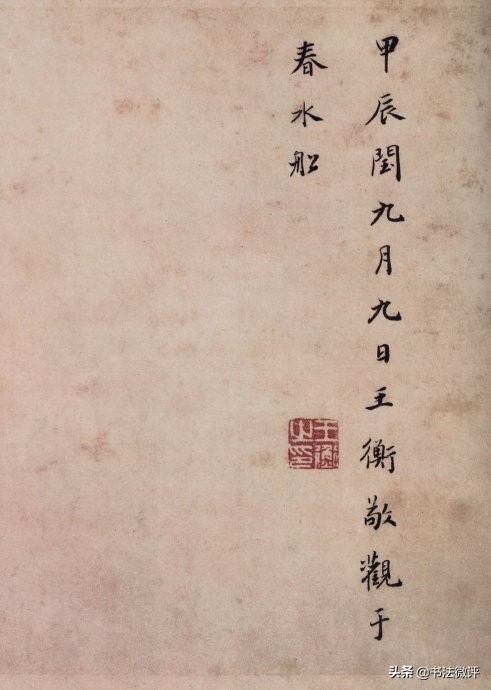 甲辰閏九月九日王衡敬觀于
春水船
王衡之印
头条 @书法微评